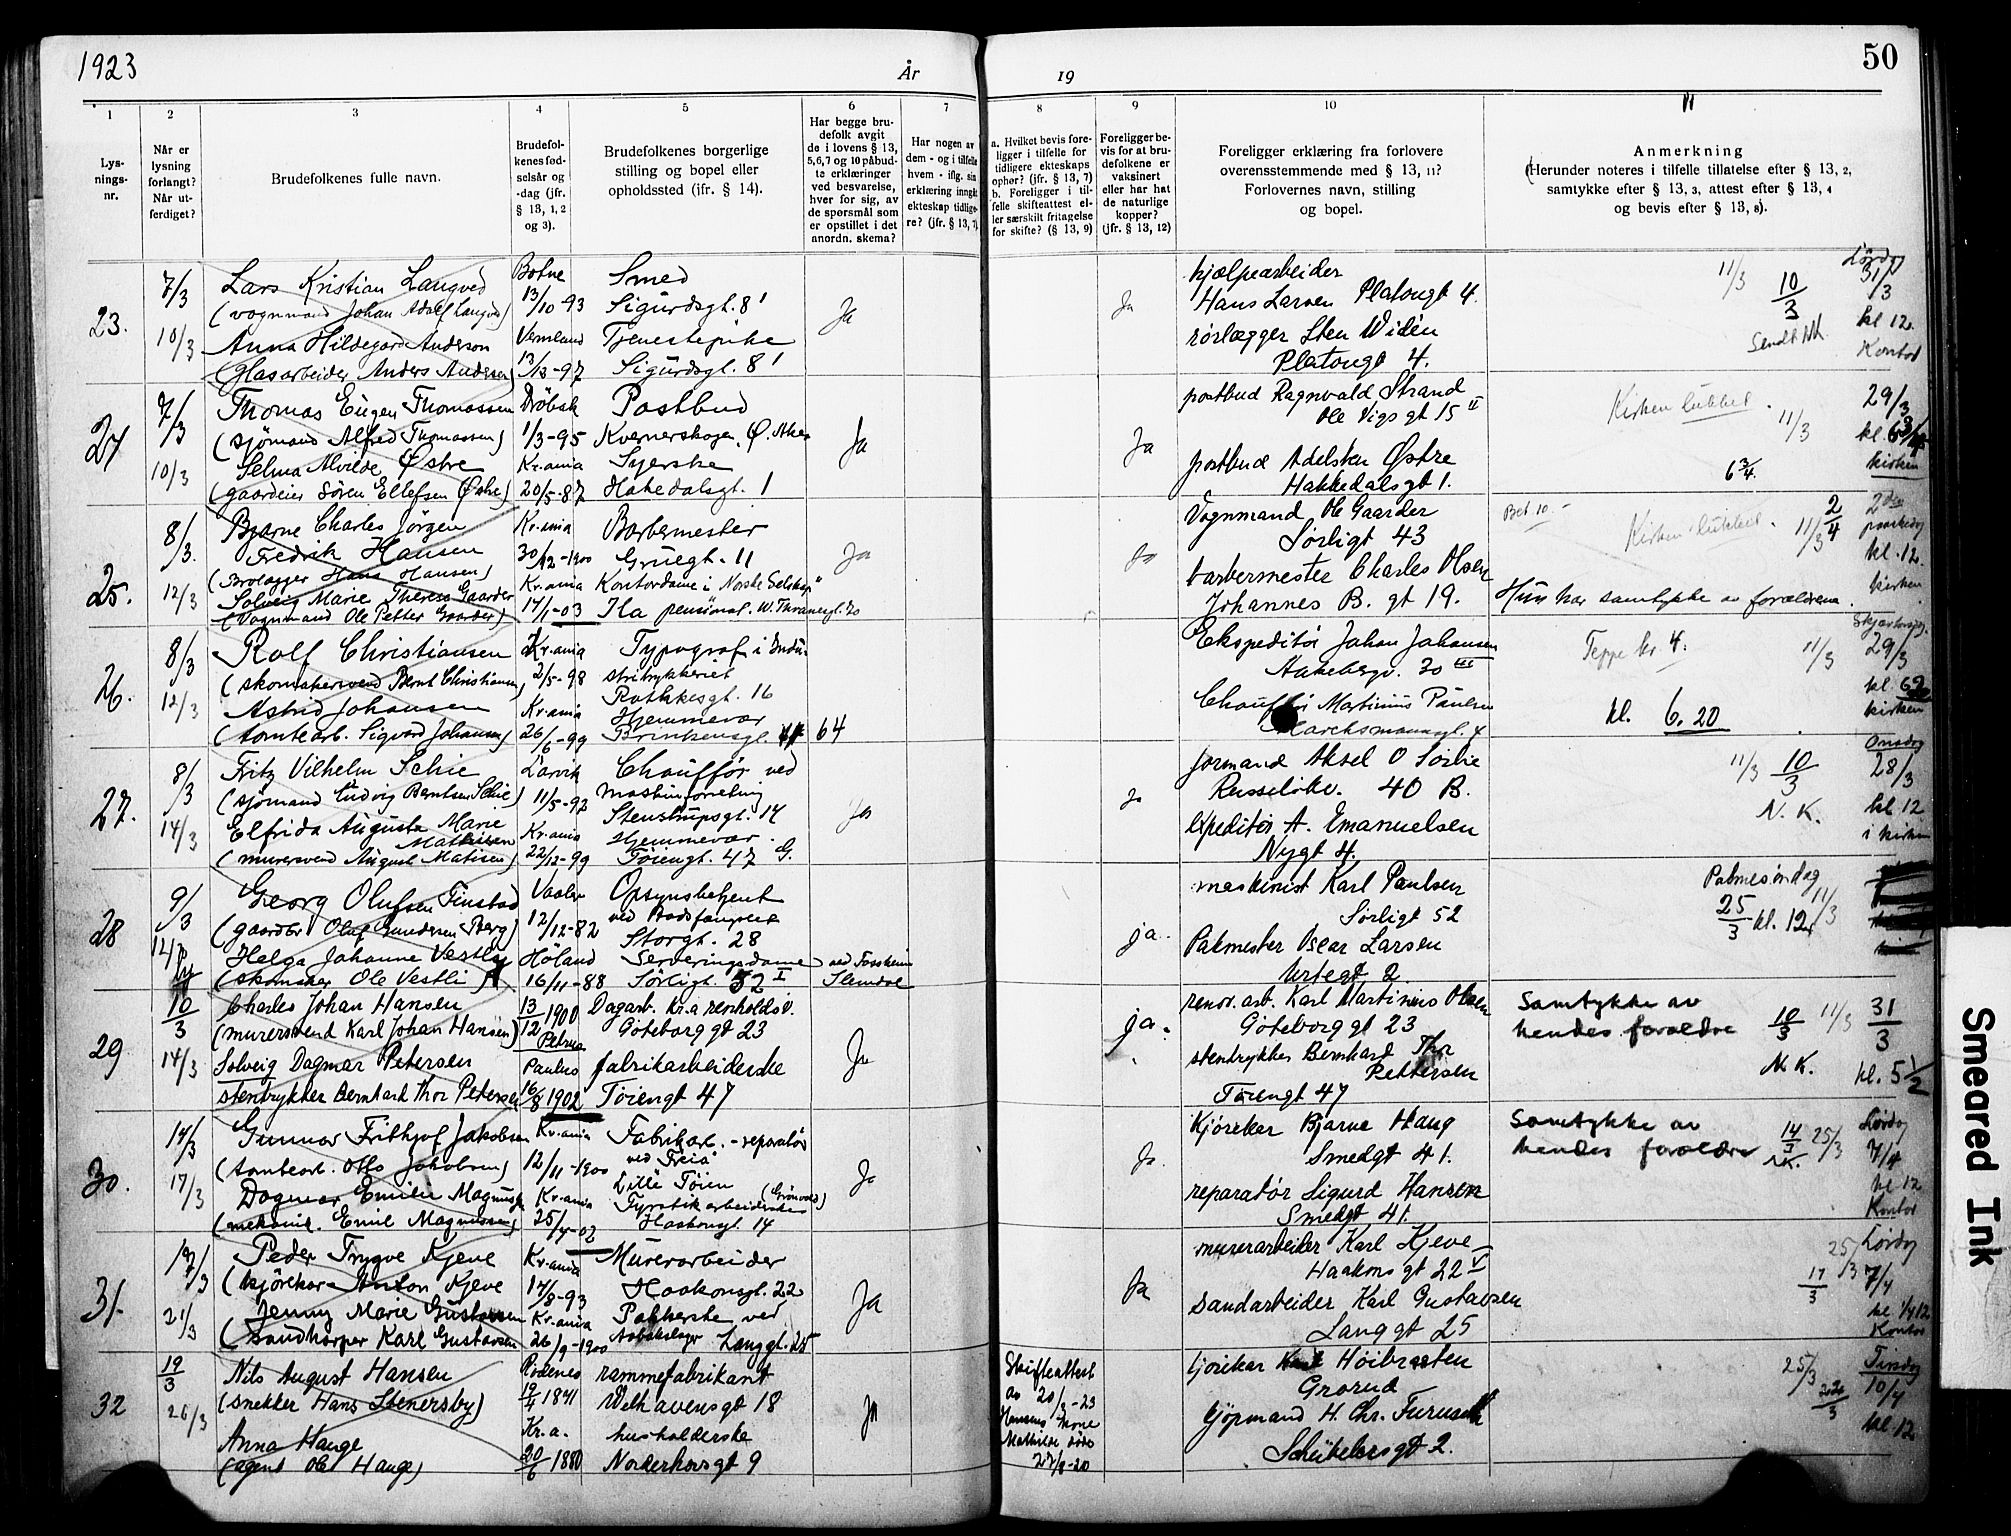 1923
År
19
50
1
2
3
4
5
6
7
8
9
10
11
Lys-
nings-
nr.
Når er
lysning
forlangt?
Når ut-
ferdiget?
Brudefolkenes fulle navn.
Brudefol-
kenes fød-
selsår og
-dag (jfr.
§ 13, 1, 2
og 3).
Brudefolkenes borgerlige
stilling og bopel eller
opholdssted (jfr. § 14).
Har begge bru-
defolk avgit
de i lovens § 13,
5,6,7 og 10 påbud-
te erklæringer
ved besvarelse,
hver for sig, av
de spørsmål som
er opstillet i det
anordn. skema?
Har nogen av
dem - og i tilfelle
hvem - iflg. sin
erklæring inngåt
ekteskap tidlige-
re? (jfr. § 13, 7)
a. Hvilket bevis fore-
ligger i tilfelle for
tidligere ekteskaps
ophør? (jfr. § 13, 7)
b. Foreligger i til-
felle skifteattest el-
ler særskilt fritagelse
for skifte? (§ 13, 9)
Foreligger be-
vis for at bru-
defolkene er
vaksinert
eller har hat
de naturlige
kopper?
(jfr. § 13, 12)
Foreligger erklæring fra forlovere
overensstemmende med § 13, 11?
Forlovernes navn, stilling
og bopel.
Anmerkning
(Herunder noteres i tilfelle tillatelse efter § 13, 2,
samtykke efter § 13, 3, attest efter § 13, 4
og bevis efter § 13, 8).
23.
7/3
10/3
Lars Kristian Langved
(vognmand Johan Adolf Langved)
Anna Hildegard Anderson
(Glasarbeider Anders Anderson)
Botne
13/10-93
Vermland
Smed
Sigurdsgt. 8 I
Tjenestepike
Sigurdsgt. 8 I
Ja
Ja
hjælpearbeider
Hans Larsen Platougt 4.
rørlægger Sten Widén
Platougt 4.
11/3
10/3
Lørdag
31/3
kl 12.
Kontor
24
7/3
10/3
Thomas Eugen Thomassen
(sjømand Alfred Thomassen)
Selma Alvilde Østre
(gaardeier Søren Ellefsen Østre)
Drøbak
1/3-95
Kr.ania
20/5-87
Postbud
Kvernerskogen, Ø. Aker
Syerske
Hakedalsgt. 1
Ja
Ja
postbud Ragnvald Strand
Ole Vigs gt 15 II
postbud Adelsten Østre
Hakkedalsgt 1.
Kirken lukket.
11/3
6 3/4.
29/3
kirken
25.
8/3.
12/3
Bjarne Charles Jörgen
Fredrik Hansen
(Brolægger Hans Hansen)
Solveig Marie Therese Gaarder
(Vognmand Ole Petter Gaarder)
Kr.ania
30/12-1900
Kr.ania
14/1-03
Barbermester
Gruegt. 11
Kontordame i Norske Selskap
Ila pensionat. W. Thranesgt. 70
Ja
Ja
Vognmand Ole Gaarder
Sørligt 43
barbermester Charles Olsen
Johannes B. gt 19.
Bet 10.-
Kirken lukket.
11/3
2/4
Hun har samtykke av forældrene.
kl. 12.
kirken
26.
8/3
12/3
Rolf Christiansen
(skomakersvend Bernt Christiansen)
Astrid Johansen
(tomtearb. Sigvard Johansen)
Kr.ania
2/5-98
Kr.ania
26/6-99
Typograf i Indu-
stritrykkeriet
Rathkesgt. 16
Hjemmevær
Brinkensgt. 64
Ekspeditör Johan Johansen
Aakebergv. 30 III
Chauffør Martinius Paulsen
Marcksmannsgt. 4
Teppe kr 4.
11/3
kl. 6.20
Skjærtorsdag.
29/3
kirken
27.
8/3
14/3
Fritz Vilhelm Schie
(sjömand Ludvig Berntsen Schie)
Elfrida Augusta Marie
Mathisen
(murersvend August Matisen)
Larvik
11/5-92
Kr.ania
22/12-99
Chauffør ved
maskinforretning
Stenstrupsgt. 14
Hjemmevær.
Tøiengt. 47 G.
Ja
Ja
formand Aksel O Sörlie
Russeløkv. 40 B.
expeditør A. Emanuelsen
Nygt 4.
11/3
10/3
N. K.
Onsdag
28/3
kl 12
i kirken
28
9/3
Georg Olufsen Finstad
(gaardbr Oluf Gundersen Berg)
Helga Johanne Vestly
(skomaker Ole Vestli)
Vaaler
12/12-82
Høland
16/11-88
Opsynsbetjent
ved Bodsfængslet
Storgt. 28
Serveringsdame ved Fossheim
Sørligt. 52 I
Slemdal
ja.
maskinist Karl Paulsen
Sørligt 52
Pakmester Oscar Larsen
Urtegt 2
Palmesøndag
25/3 kl. 12
11/3
29
10/3
14/3
Charles Johan Hansen
(murersvend Karl Johan Hansen)
Solveig Dagmar Petersen
stentrykker Bernhard Thor Petersen
13/12 1900
Petrus
Paulus
16/8 1902
Dagarb. Kr.a renholdsv.
Göteborggt 23
fabrikarbeiderske
Töiengt 47
Ja
ja.
renov. arb. Karl Martinius Olsen
Göteborggt 23
stentrykker Bernhard Thor
Pettersen
Töiengt 47
Samtykke av
hendes forældre
10/3
11/3
N. K.
31/3
kl. 5 1/2
30.
14/3
17/3
Gunnar Frithjof Jakobsen
(tomtearb. Otto Jakobsen)
Dagmar Emilie Magnussen
(mekanik. Emil Magnussen)
Kr.ania
12/11-1900
Kr.ania
25/4-02
Fabrikarb. - reparatør
ved "Freia"
Lille Töien
Fyrstikarbeiderske (Grönvold)
Haakonsgt. 14
Ja
Ja
Kjörekar Bjarne Haug
Smedgt 41.
reparatør Sigurd Hansen
Smedgt 41.
Samtykke av
hendes forældre
14/3
N.K.
25/3
Lørdag
7/4
kl 12
Kontor
31.
17/3
21/3
Peder Trygve Kjeve
(kjörekar Anton Kjeve
Jenny Marie Gustavsen
(sandharper Karl Gustavsen
Kr.ania
14/8-93
Kr.ania
26/9-1900
Murerarbeider
Haakonsgt. 22
Pakkerske ved
Langgt. 25
Ja
Ja
murerarbeider Karl Kjeve
Haakonsgt 22 V
sandarbeider Karl Gustavsen
Langgt 25
25/3
17/3
Lørdag
7/4
Kontor
32
19/3
26/3
Nils August Hansen
(snekker Hans Stenersby)
Anna Hauge
(agent Ole Hauge)
Rödenes
19/4 1841
Kr.a.
20/6 1880
rammefabrikant
Welhavensgt 18
husholderske
Norderhovsgt 9
Ja
Skifteattest
av 20/3-23
Hansens kone
Mathilde döde
27/8-20
kjörekar Höibraaten
Grorud
kjöpmand H. Chr. Furuseth
Scheiblersgt 2.
25/3
Tirsdag
10/4
kl. 12
Smeared Ink